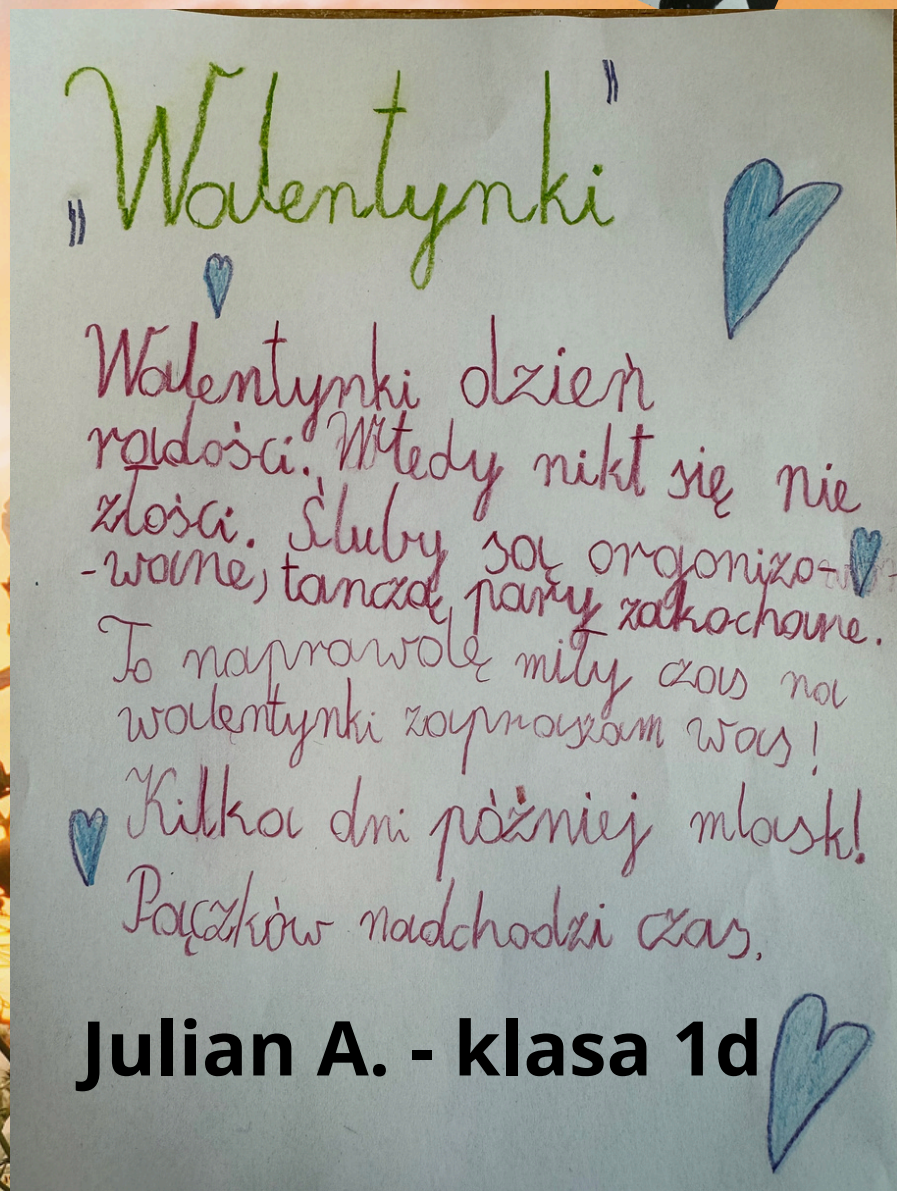 „Walentynki"
Walentynki dzień
radości. Wtedy nikt się nie
złości. Śluby są organizo-
-wane, tańczą pary zakochane.
To naprawdę miły czas na
walentynki zapraszam was!
Kilka dni później mlask!
Pączków nadchodzi czas.
Julian A. - klasa 1d